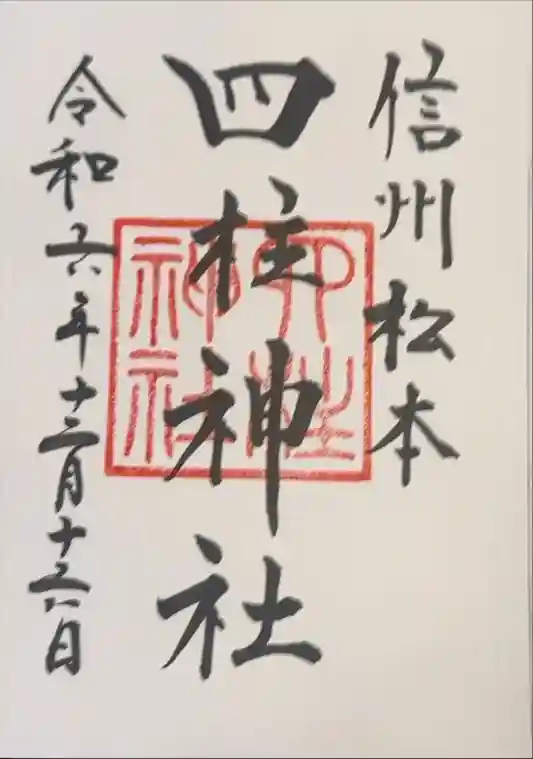 信州松本
四柱神社
四柱
神社
令和六年十二月十六日